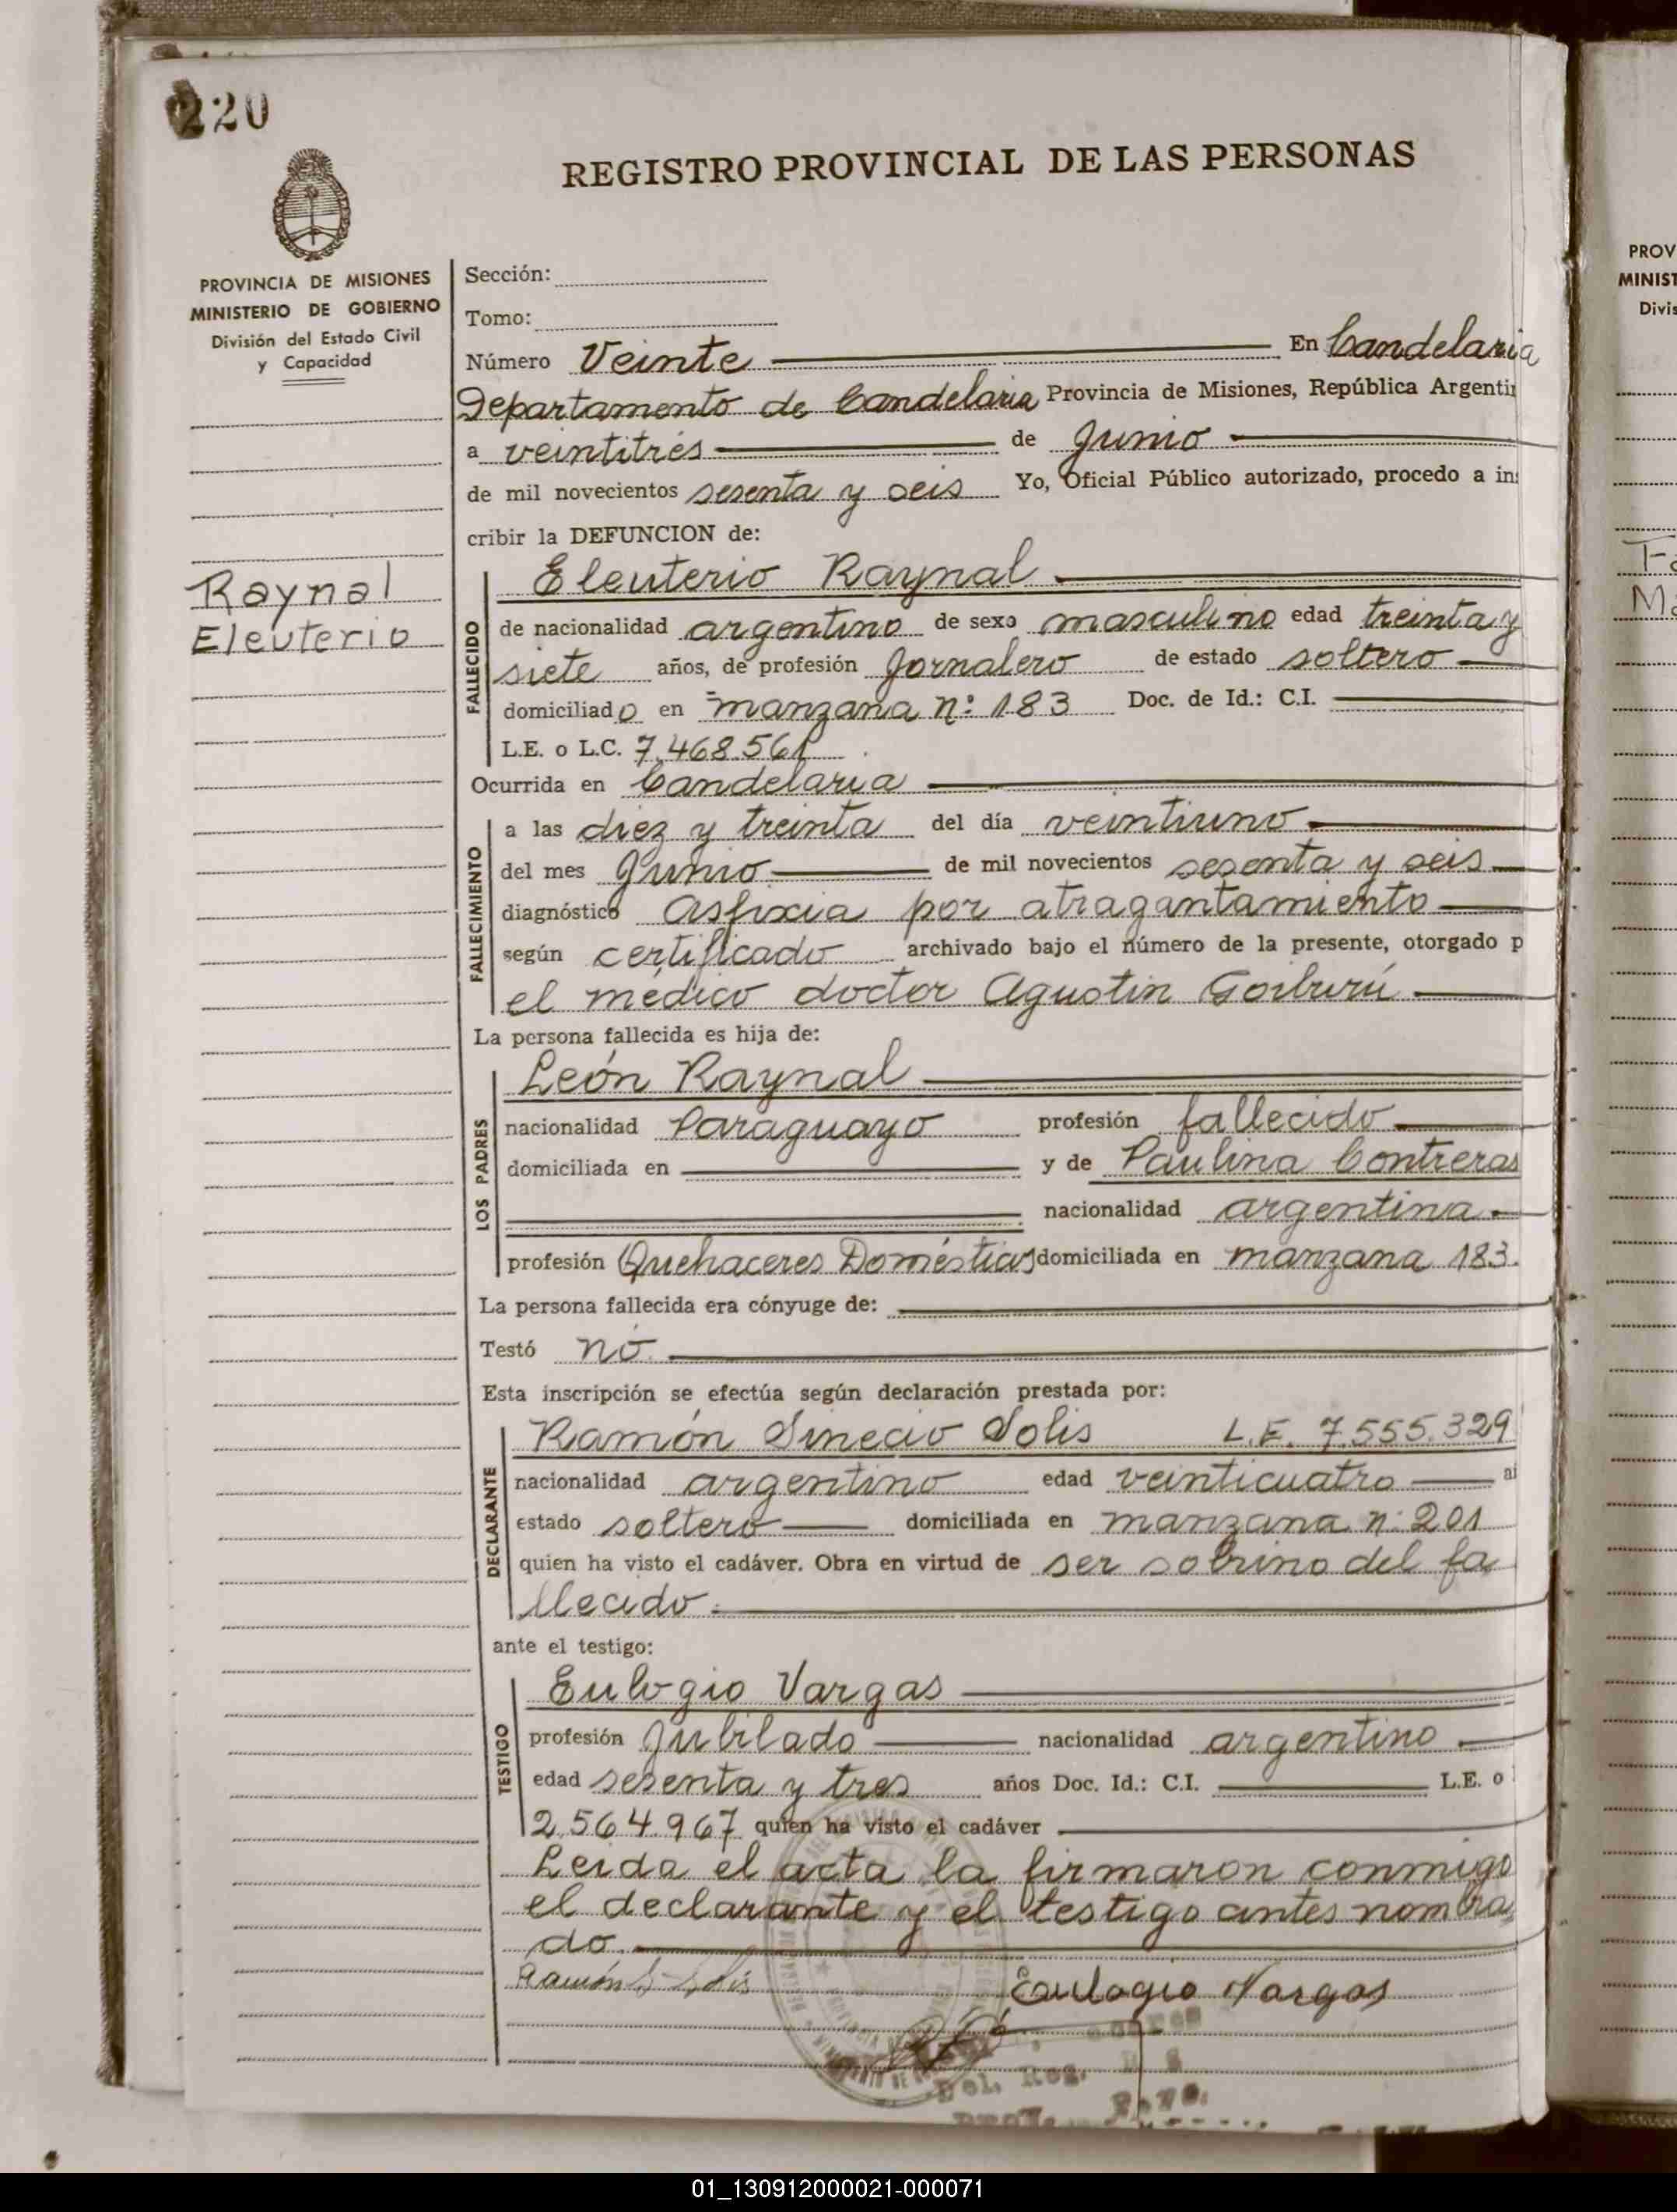 220
REGISTRO PROVINCIAL DE LAS PERSONAS
PROVINCIA DE MISIONES
MINISTERIO DE GOBIERNO
División del Estado Civil
y Capacidad
Raynal
Eleuterio
Sección:
Tomo:
Número Veinte En Candelaria
Departamento de Candelaria Provincia de Misiones, República Argenti
a veintitrés de Junio
de mil novecientos sesenta y seis Yo, Oficial Público autorizado, procedo a ins
cribir la DEFUNCION de:
FALLECIDO
Eleuterio Raynal
de nacionalidad argentino de sexo masculino edad treinta y
siete años, de profesión Jornalero de estado soltero
domiciliado en manzana n: 183 Doc. de Id.: C.I.
L.E. o L.C. 7.468.561
Ocurrida en Candelaria
FALLECIMIENTO
a las diez y treinta del día veintiuno
del mes Junio de mil novecientos sesenta y seis
diagnóstico Asfixia por atragantamiento
según certificado archivado bajo el número de la presente, otorgado p
el médico doctor Agustin Goiburú
La persona fallecida es hija de:
LOS PADRES
León Raynal
nacionalidad Paraguayo profesión fallecido
domiciliada en y de Paulina Contreras
nacionalidad argentina
profesión Quehaceres Domésticos domiciliada en manzana 183.
La persona fallecida era cónyuge de:
Testó nó
Esta inscripción se efectúa según declaración prestada por:
DECLARANTE
Ramón Sinecio Solis L.E. 7.555.329
nacionalidad argentino edad veinticuatro
estado soltero domiciliada en manzana n: 201
quien ha visto el cadáver. Obra en virtud de ser sobrino del fa
llecido.
ante el testigo:
TESTIGO
Eulogio Vargas
profesión Jubilado nacionalidad argentino
edad sesenta y tres años Doc. Id.: C.I. L.E. o
2.564.967 quien ha visto el cadáver
Leida el acta la firmaron conmigo
el declarante y el testigo antes nombra
do.
Ramón S. Solis
Eulogio Vargas
Del. Reg.
PROV
MINIST
Divis
01_130912000021-000071